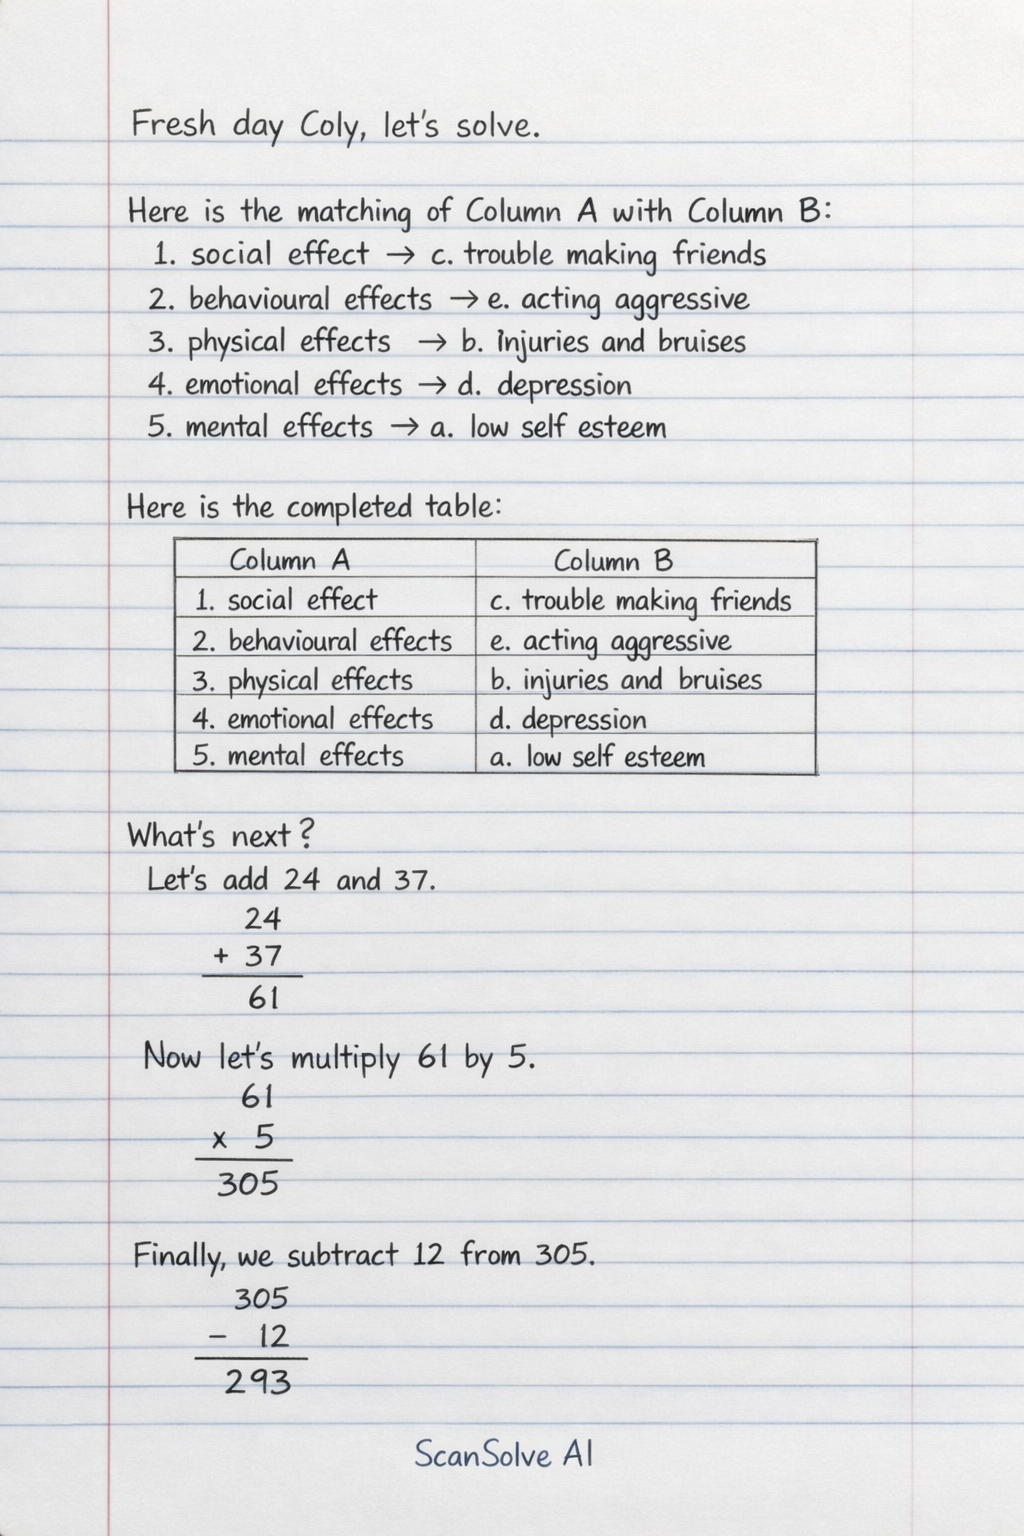 Fresh day Coly, let's solve.
Here is the matching of Column A with Column B:
1. social effect → c. trouble making friends
2. behavioural effects → e. acting aggressive
3. physical effects → b. injuries and bruises
4. emotional effects → d. depression
5. mental effects → a. low self esteem
Here is the completed table:
Column A Column B
1. social effect c. trouble making friends
2. behavioural effects e. acting aggressive
3. physical effects b. injuries and bruises
4. emotional effects d. depression
5. mental effects a. low self esteem
What's next?
Let's add 24 and 37.
24
+ 37
61
Now let's multiply 61 by 5.
61
x 5
305
Finally, we subtract 12 from 305.
305
− 12
293
ScanSolve AI